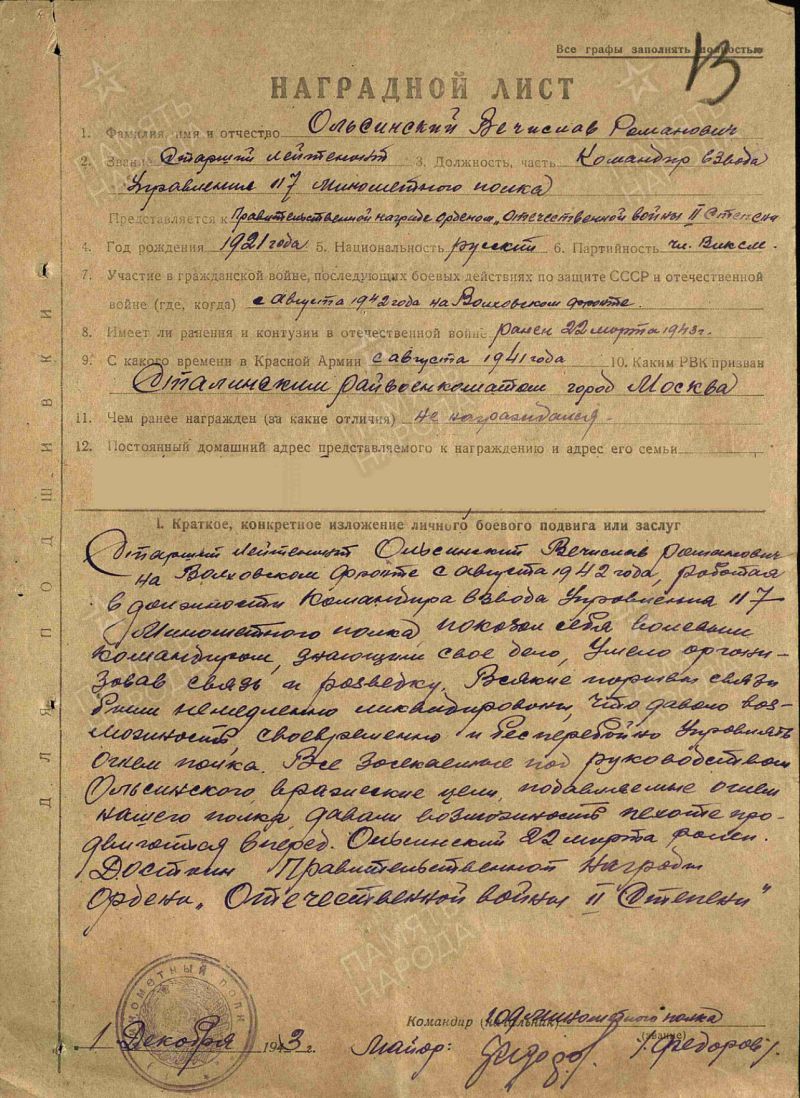 Все графы заполнять полностью
13
НАГРАДНОЙ ЛИСТ
1. Фамилия, имя и отчество Ольсинский Вечислав Романович
2. Звание Старший лейтенант 3. Должность, часть Командир взвода
Управления 117 минометного полка
Представляется к Правительственной награде орденом „Отечественной войны II Степени
4. Год рождения 1921 года 5. Национальность русский 6. Партийность чл. Влксм.
7. Участие в гражданской войне, последующих боевых действиях по защите СССР и отечественной
войне (где, когда) с августа 1942 года на Волховском фронте.
8. Имеет ли ранения и контузии в отечественной войне ранен 22 марта 1943г.
9. С какого времени в Красной Армии с августа 1941 года 10. Каким РВК призван
Сталинским райвоенкоматом город Москва
11. Чем ранее награжден (за какие отличия) не награждался
12. Постоянный домашний адрес представляемого к награждению и адрес его семьи
I. Краткое, конкретное изложение личного боевого подвига или заслуг
Старший лейтенант Ольсинский Вечислав романович
на Волховском фронте с августа 1942 года, работая
в должности Командира взвода Управления 117
Минометного полка показал себя волевым
командиром, знающим свое дело, Умело органи-
зовав связь и разведку. Всякие порывы связи
были немедленно ликвидированы, что давало воз-
можность, своевременно и бесперебойно Управлять
огнем полка. Все засекаемые под руководством
Ольсинского вражеские цели, подавляемые огнем
нашего полка давали возможность пехоте про-
двигаться вперед. Ольсинский 22 марта ранен.
Достоин Правительственной Награды
Ордена „Отечественной войны II Степени"
Командир (начальник) минометного полка
(звание)
1 Декабря 1943 г. Майор: /Федоров/.
ДЛЯ ПОДШИВКИ
ПАМЯТЬ НАРОДА